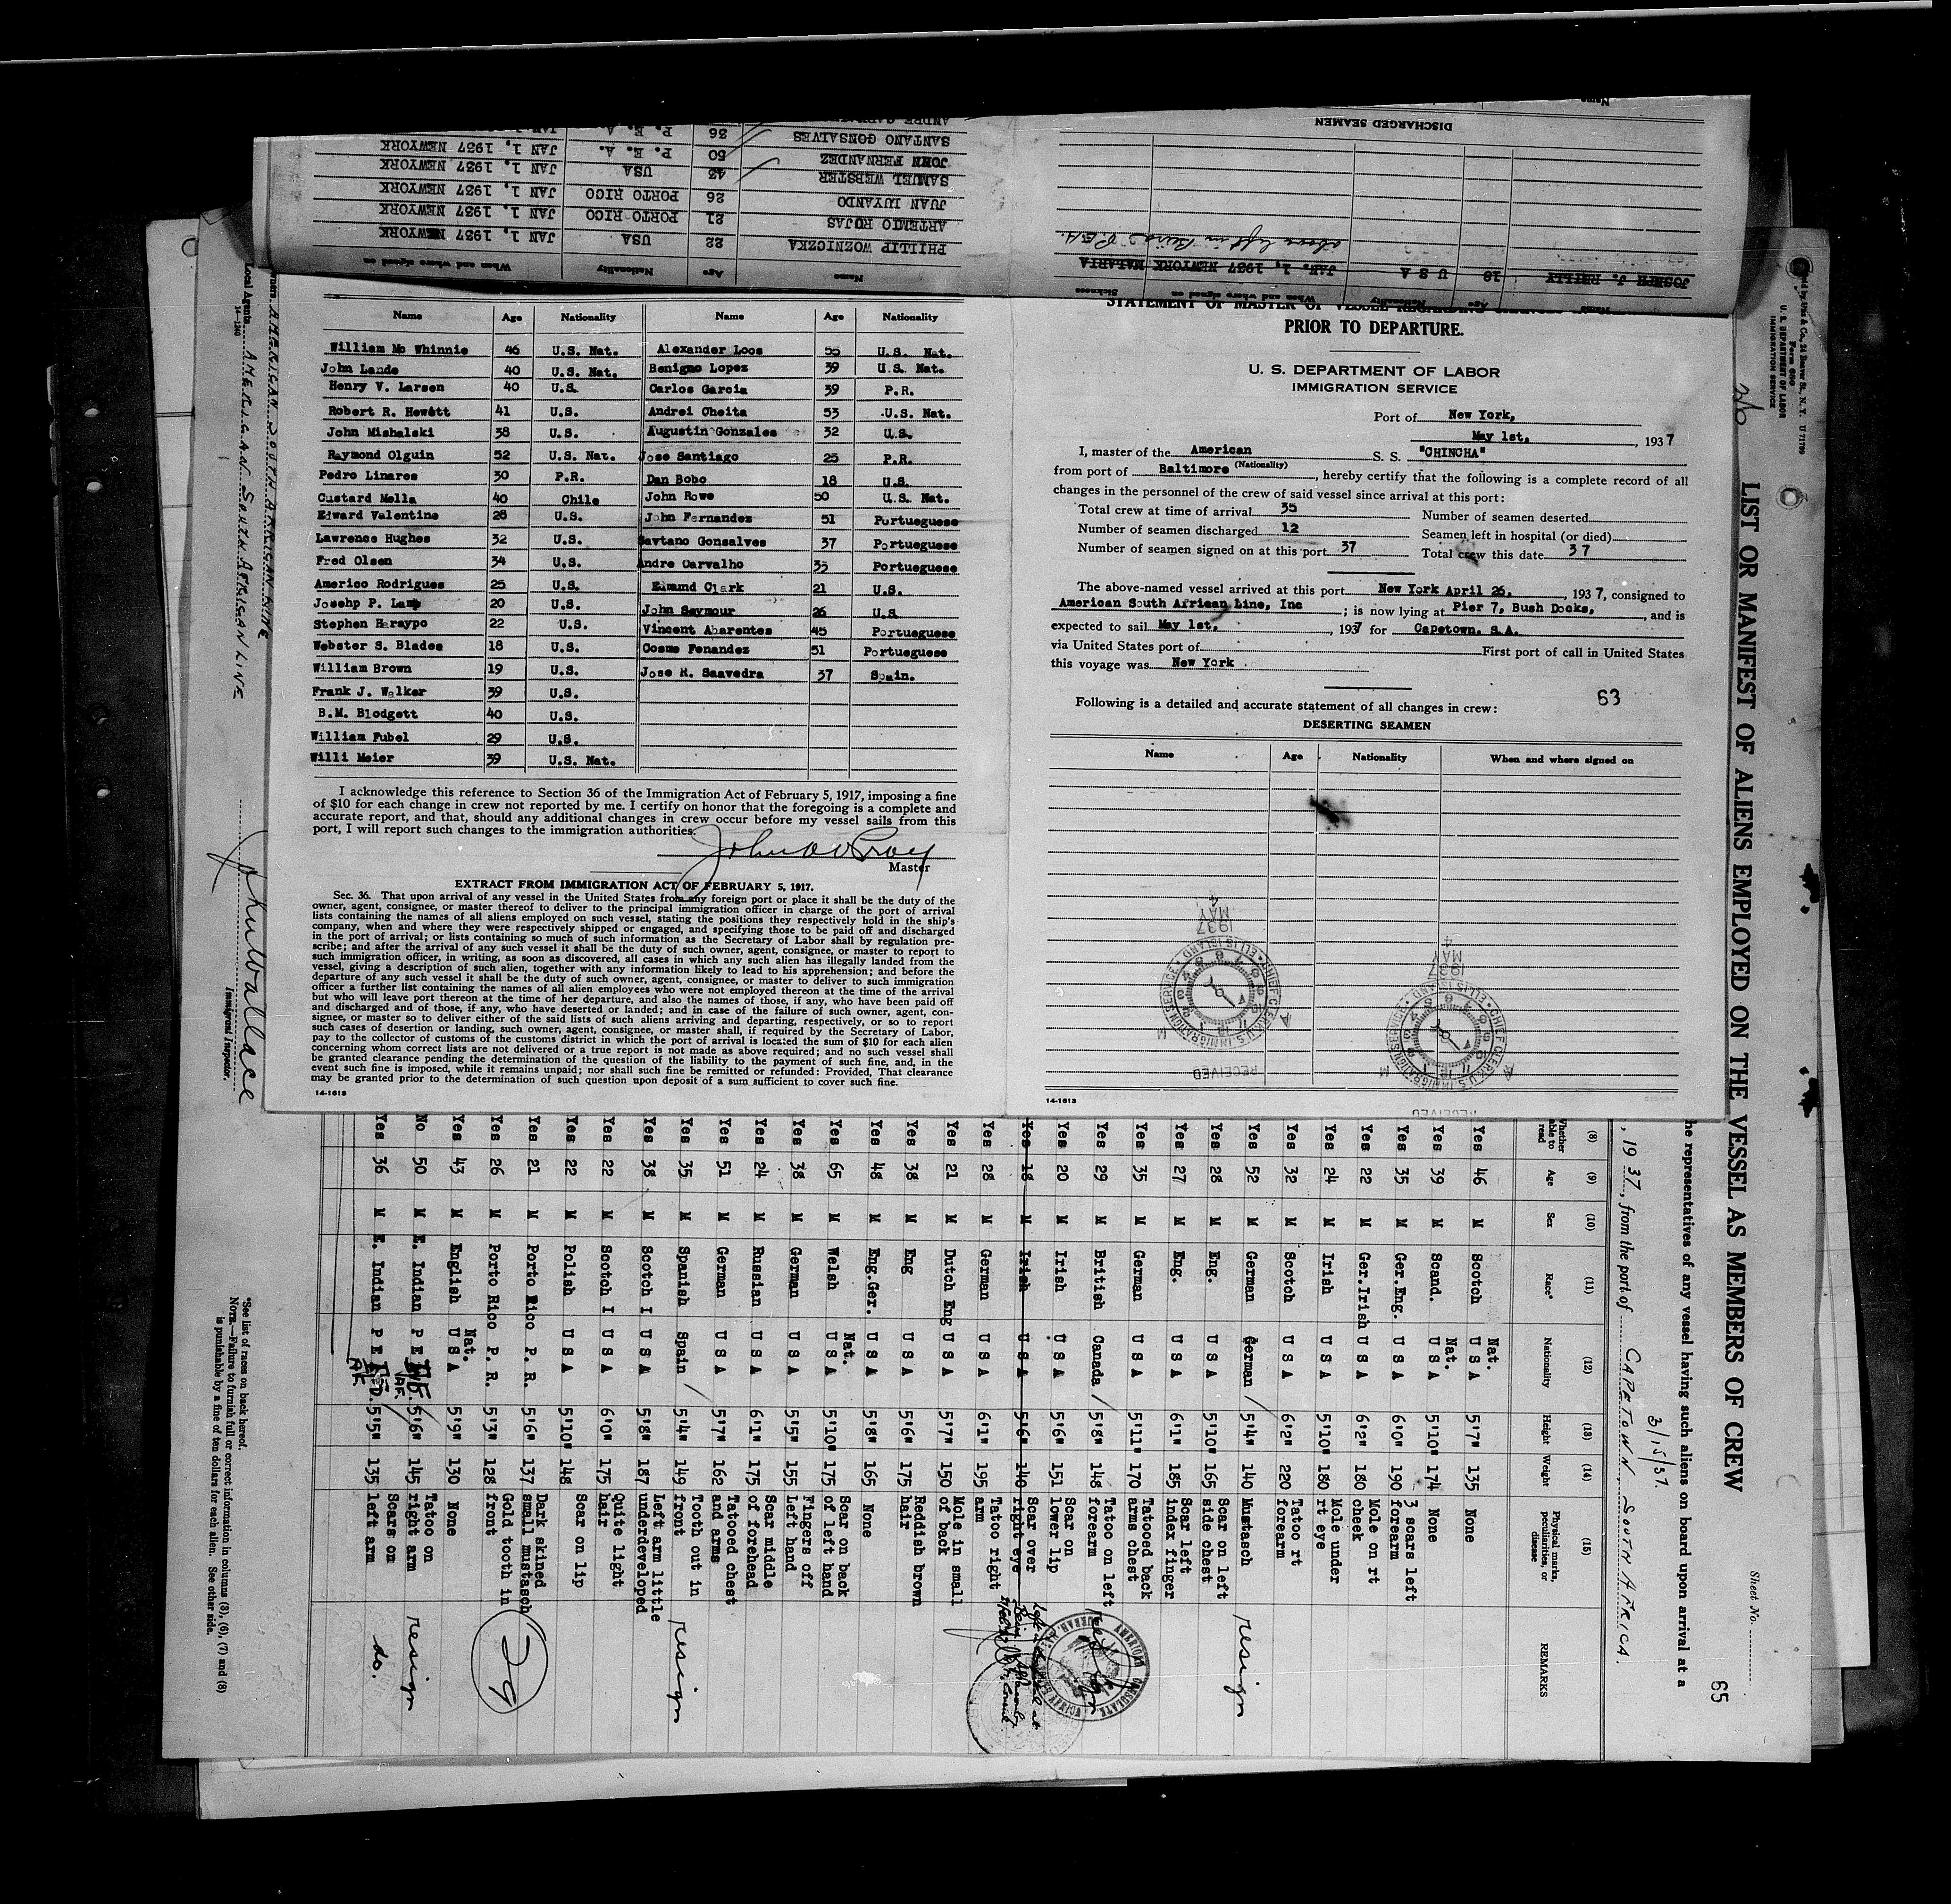 DISCHARGED SEAMEN
Name Age Nationality When and where signed on Sickness
JOSEPH J. REILLY 18 U S A JAN. 1, 1937 NEWYORK MALARIA
above left in Beira P.E.A.
Name Age Nationality When and where signed on
PHILLIP WOZNICZKA 22 USA JAN 1, 1937 NEWYORK
ARTEMIO ROJAS 21 PORTO RICO JAN 1, 1937 NEWYORK
JUAN LUYANDO 26 PORTO RICO JAN 1, 1937 NEWYORK
SAMUEL WEBSTER 43 USA JAN 1, 1937 NEWYORK
JOHN FERNANDEZ 50 P. E. A. JAN 1, 1937 NEWYORK
SANTANO GONSALVES 36 P. E. A.
Name Age Nationality Name Age Nationality
William Mc Whinnie 46 U.S. Nat. Alexander Loos 55 U.S. Nat.
John Lande 40 U.S. Nat. Benigno Lopez 39 U.S. Nat.
Henry V. Larsen 40 U.S. Carlos Garcia 39 P.R.
Robert R. Hewett 41 U.S. Andrei Cheita 53 U.S. Nat.
John Mishalski 38 U.S. Augustin Gonzales 32 U.S.
Raymond Olguin 52 U.S. Nat. Jose Santiago 25 P.R.
Pedro Linares 30 P.R. Dan Bobo 18 U.S.
Custard Mella 40 Chile John Rowe 50 U.S. Nat.
Edward Valentine 28 U.S. John Fernandez 51 Portueguese
Lawrence Hughes 32 U.S. Savtano Gonsalves 37 Portueguese
Fred Olsen 34 U.S. Andre Carvalho 35 Portueguese
Americo Rodrigues 25 U.S. Edmund Clark 21 U.S.
Josehp P. Lamp 20 U.S. John Seymour 26 U.S
Stephen Haraypo 22 U.S. Vincent Abarentes 45 Portueguese
Webster S. Blades 18 U.S. Cosme Fenandez 51 Portueguese
William Brown 19 U.S. Jose R. Saavedra 37 Spain.
Frank J. Walker 39 U.S.
B.M. Blodgett 40 U.S.
William Fubel 29 U.S.
Willi Meier 39 U.S. Nat.
I acknowledge this reference to Section 36 of the Immigration Act of February 5, 1917, imposing a fine
of $10 for each change in crew not reported by me. I certify on honor that the foregoing is a complete and
accurate report, and that, should any additional changes in crew occur before my vessel sails from this
port, I will report such changes to the immigration authorities.
Master
EXTRACT FROM IMMIGRATION ACT OF FEBRUARY 5, 1917.
Sec. 36. That upon arrival of any vessel in the United States from any foreign port or place it shall be the duty of the
owner, agent, consignee, or master thereof to deliver to the principal immigration officer in charge of the port of arrival
lists containing the names of all aliens employed on such vessel, stating the positions they respectively hold in the ship's
company, when and where they were respectively shipped or engaged, and specifying those to be paid off and discharged
in the port of arrival; or lists containing so much of such information as the Secretary of Labor shall by regulation pre-
scribe; and after the arrival of any such vessel it shall be the duty of such owner, agent, consignee, or master to report to
such immigration officer, in writing, as soon as discovered, all cases in which any such alien has illegally landed from the
vessel, giving a description of such alien, together with any information likely to lead to his apprehension; and before the
departure of any such vessel it shall be the duty of such owner, agent, consignee, or master to deliver to such immigration
officer a further list containing the names of all alien employees who were not employed thereon at the time of the arrival
but who will leave port thereon at the time of her departure, and also the names of those, if any, who have been paid off
and discharged and of those, if any, who have deserted or landed; and in case of the failure of such owner, agent, con-
signee, or master so to deliver either of the said lists of such aliens arriving and departing, respectively, or so to report
such cases of desertion or landing, such owner, agent, consignee, or master shall, if required by the Secretary of Labor,
pay to the collector of customs of the customs district in which the port of arrival is located the sum of $10 for each alien
concerning whom correct lists are not delivered or a true report is not made as above required; and no such vessel shall
be granted clearance pending the determination of the question of the liability to the payment of such fine, and, in the
event such fine is imposed, while it remains unpaid; nor shall such fine be remitted or refunded: Provided, That clearance
may be granted prior to the determination of such question upon deposit of a sum sufficient to cover such fine.
14-1613
STATEMENT OF MASTER OF VESSEL REGARDING
PRIOR TO DEPARTURE.
U. S. DEPARTMENT OF LABOR
IMMIGRATION SERVICE
Port of New York,
May 1st, , 1937
I, master of the American S. S. "CHINCHA"
(Nationality)
from port of Baltimore , hereby certify that the following is a complete record of all
changes in the personnel of the crew of said vessel since arrival at this port:
Total crew at time of arrival 35 Number of seamen deserted
Number of seamen discharged 12 Seamen left in hospital (or died)
Number of seamen signed on at this port 37 Total crew this date 37
The above-named vessel arrived at this port New York April 26, , 1937, consigned to
American South African Line, Inc ; is now lying at Pier 7, Bush Docks, , and is
expected to sail May 1st, , 1937 for Capetown. S.A.
via United States port of First port of call in United States
this voyage was New York
63
Following is a detailed and accurate statement of all changes in crew:
DESERTING SEAMEN
Name Age Nationality When and where signed on
RECEIVED
CHIEF CLERK U.S. IMMIGRATION SERVICE • ELLIS ISLAND
1937 MAY 4
RECEIVED
CHIEF CLERK U.S. IMMIGRATION SERVICE • ELLIS ISLAND
1937 MAY 4
14-1613
Form 680
U. S. DEPARTMENT OF LABOR
IMMIGRATION SERVICE
Sheet No.
65
LIST OR MANIFEST OF ALIENS EMPLOYED ON THE VESSEL AS MEMBERS OF CREW
he representatives of any vessel having such aliens on board upon arrival at a
3/15/37.
, 1937, from the port of CAPETOWN SOUTH AFRICA.
(8) (9) (10) (11) (12) (13) (14) (15)
Whether able to read Age Sex Race* Nationality Height Weight Physical marks, peculiarities, or disease REMARKS
Yes 46 M Scotch Nat. U S A 5'7" 135 None
Yes 39 M Scand. Nat. U S A 5'10" 174 None
Yes 35 M Ger.Eng. U S A 6'0" 190 3 scars left forearm
Yes 22 M Ger.Irish U S A 6'2" 180 Mole on rt cheek
Yes 24 M Irish U S A 5'10" 180 Mole under rt eye
Yes 32 M Scotch U S A 6'2" 220 Tatoo rt forearm
Yes 52 M German German 5'4" 140 Mustasch resign
Yes 28 M Eng. U S A 5'10" 165 Scar on left side chest
Yes 27 M Eng. U S A 6'1" 185 Scar left index finger
Yes 35 M German U S A 5'11" 170 Tatooed back arms chest
Yes 29 M British Canada 5'8" 148 Tatoo on left forearm
Yes 20 M Irish U S A 5'6" 151 Scar on lower lip
Yes 18 M Irish U S A 5'6" 140 Scar over right eye
Yes 28 M German U S A 6'1" 195 Tatoo right arm
Yes 21 M Dutch Eng U S A 5'7" 150 Mole in small of back
Yes 38 M Eng U S A 5'6" 175 Reddish brown hair
Yes 48 M Eng.Ger. U S A 5'8" 165 None
Yes 65 M Welsh Nat. U S A 5'10" 175 Scar on back of left hand
Yes 38 M German U S A 5'5" 155 Fingers off Left hand
Yes 24 M Russian U S A 6'1" 175 Scar middle of forehead
Yes 51 M German U S A 5'7" 162 Tatooed chest and arms
Yes 35 M Spanish Spain 5'4" 149 Tooth out in front resign
Yes 38 M Scotch I U S A 5'8" 187 Left arm little underdeveloped
Yes 22 M Scotch I U S A 6'0" 175 Quite light hair
Yes 22 M Polish U S A 5'10" 148 Scar on lip
Yes 21 M Porto Rico P. R. 5'6" 137 Dark skined small mustasch
Yes 26 M Porto Rico P. R. 5'3" 128 Gold tooth in front
Yes 43 M English Nat. U S A 5'9" 130 None
No 50 M E. Indian P E 5'6" 145 Tatoo on right arm resign
Yes 36 M E. Indian P E 5'5" 135 Scars on left arm do.
AMERICAN CONSULATE
*See list of races on back hereof.
NOTE.—Failure to furnish full or correct information in columns (3), (6), (7) and (8)
is punishable by a fine of ten dollars for each alien. See other side.
AMERICAN SOUTH AFRICAN LINE
Local Agents AMERICAN SOUTH AFRICAN LINE
John Wallace
Immigrant Inspector.